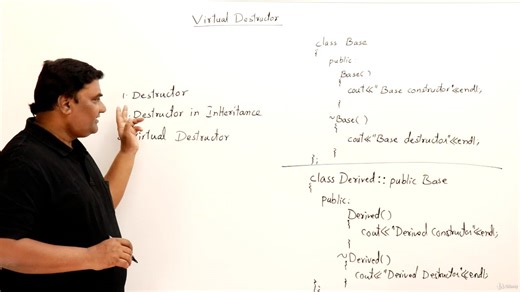 Virtual Destructor
1. Destructor
Destructor in Inheritance
Virtual Destructor
class Base
{
public
Base()
{
cout<<"Base constructor"<<endl;
}
~Base()
{
cout<<"Base destructor"<<endl;
}
};
class Derived:: public Base
{
public:
Derived()
{
cout<<"Derived Constructor"<<endl;
}
~Derived()
{
cout<<"Derived Destructor"<<endl;
}
};